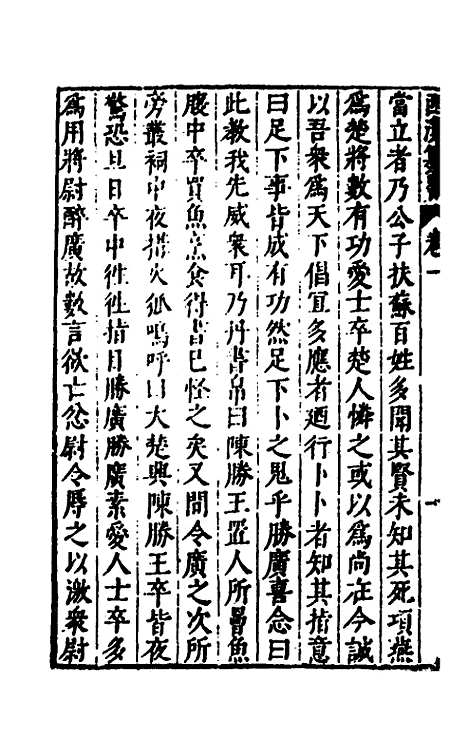 當立者乃公子扶蘇百姓多聞其賢未知其死項燕
爲楚將數有功愛士卒楚人憐之或以爲尚在今誠
以吾衆爲天下倡宜多應者廼行卜卜者知其指意
曰足下事皆成有功然足下卜之鬼乎勝廣喜念曰
此教我先威衆耳乃丹書帛曰陳勝王置人所罾魚
腹中卒買魚烹食得書已怪之矣又間令廣之次所
旁叢祠中夜搆火狐鳴呼曰大楚興陳勝王卒皆夜
驚恐旦日卒中徃徃指目勝廣勝廣素愛人士卒多
爲用將尉醉廣故數言欲亡忿尉令辱之以激衆尉
卷一